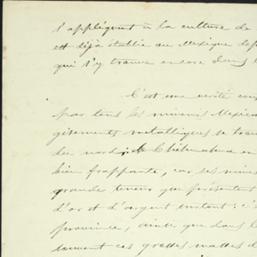 s'appliquent à la culture de
est déjà établie au Mexique dep
qui s'y trouve encore dans l
C'est une vérité con
par tous les mineurs Mexica
gisements métalliques se trouv
du nord; le Chihuahua en
bien frappante, car ses mines
grande teneur que présentent
d'or et d'argent surtout: c'e
province, ainsi que dans l
trouvent ces grosses masses d